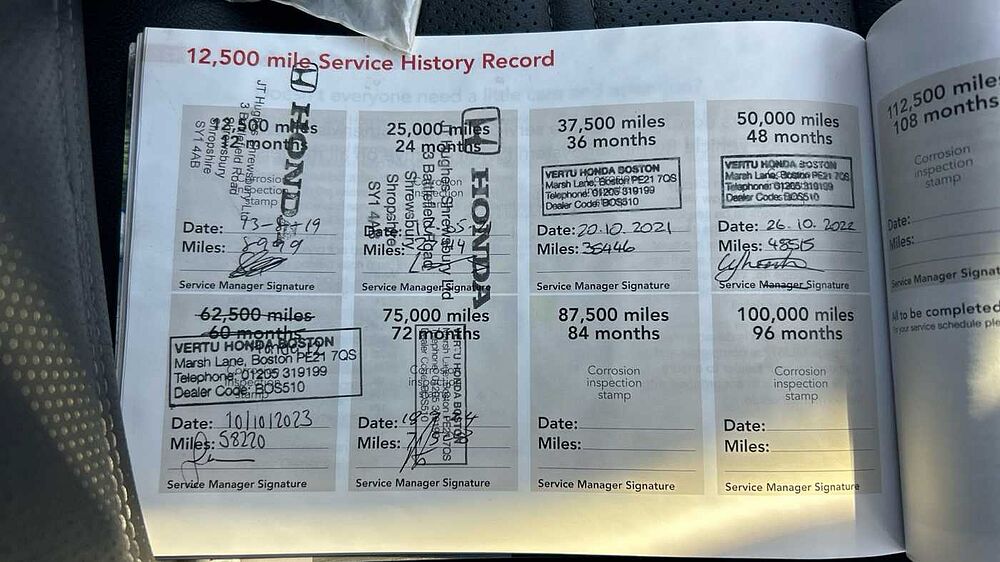 12,500 mile Service History Record
12,500 miles
12 months
HONDA
3 Battlefield Road
Shrewsbury
Shropshire
SY1 4AB
Corrosion
inspection
stamp
Date:
Miles: 8999
Service Manager Signature
25,000 miles
24 months
HONDA
3 Battlefield Road
Shrewsbury
Shropshire
SY1 4AB
Date:
Miles:
Service Manager Signature
37,500 miles
36 months
VERTU HONDA BOSTON
Marsh Lane, Boston PE21 7QS
Telephone: 01205 319199
Dealer Code: BOS510
Date: 20.10.2021
Miles: 35446
Service Manager Signature
50,000 miles
48 months
VERTU HONDA BOSTON
Marsh Lane, Boston PE21 7QS
Telephone: 01205 319199
Dealer Code: BOS510
Date: 26.10.2022
Miles: 48515
Service Manager Signature
62,500 miles
60 months
VERTU HONDA BOSTON
Marsh Lane, Boston PE21 7QS
Telephone: 01205 319199
Dealer Code: BOS510
Date: 10/10/2023
Miles: 58220
Service Manager Signature
75,000 miles
72 months
VERTU HONDA BOSTON
Date:
Miles:
Service Manager Signature
87,500 miles
84 months
Corrosion
inspection
stamp
Date:
Miles:
Service Manager Signature
100,000 miles
96 months
Corrosion
inspection
stamp
Date:
Miles:
Service Manager Signature
112,500 miles
108 months
Corrosion
inspection
stamp
Date:
Miles:
Service Manager Signat
to be completed
your service schedule